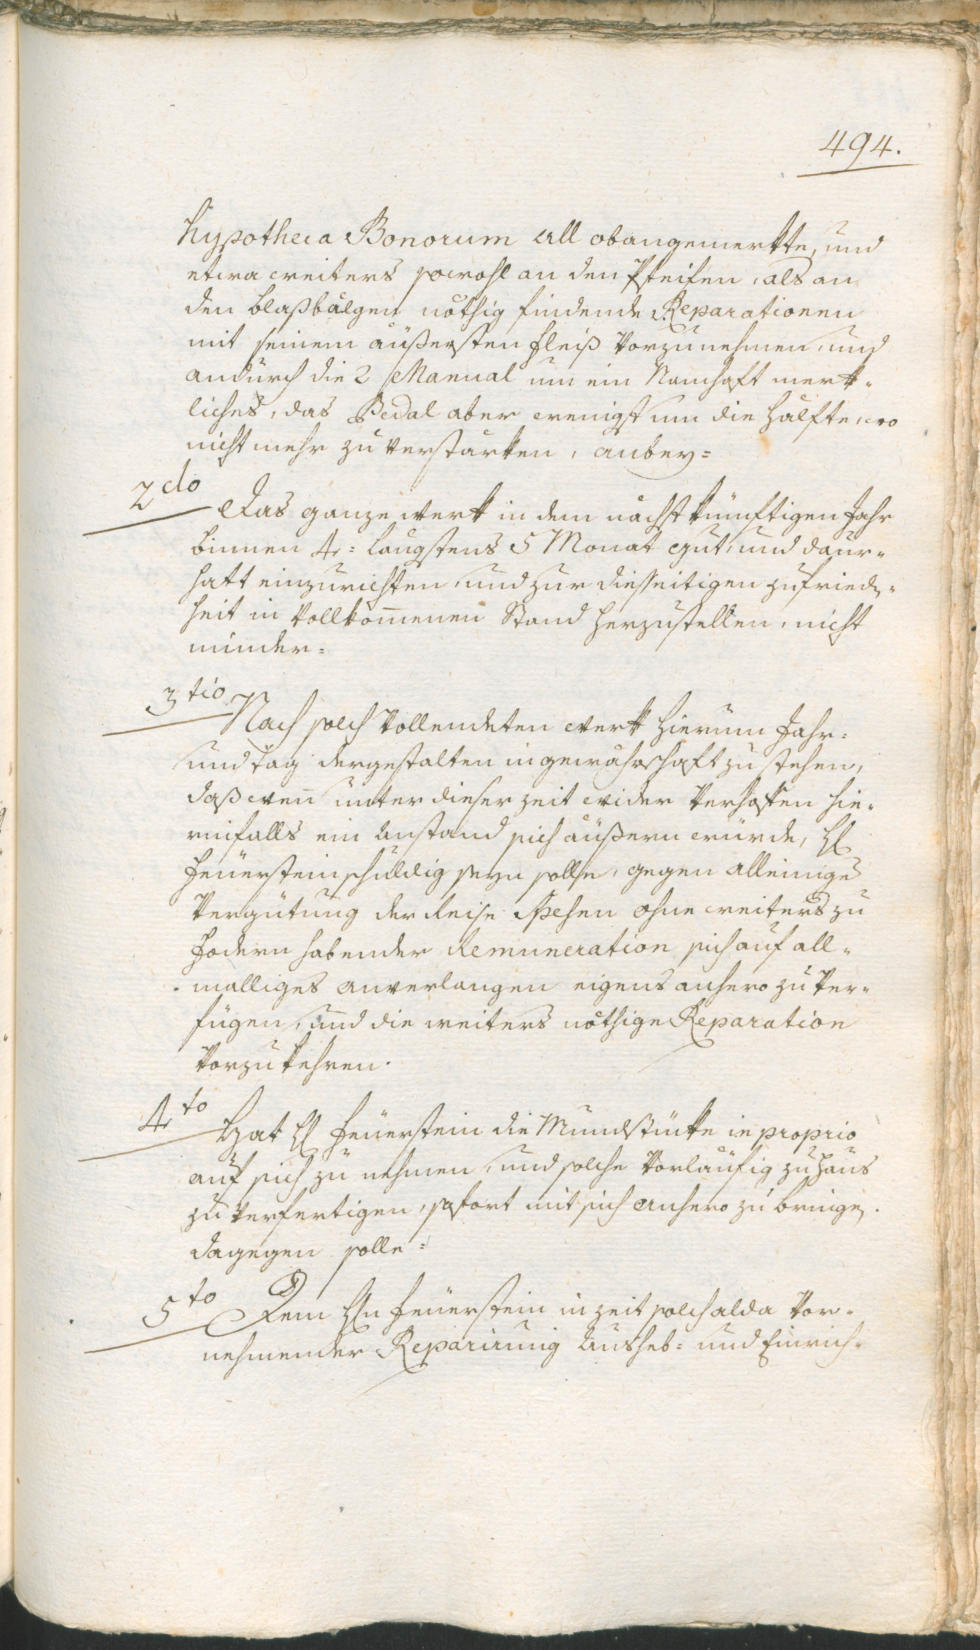 494.
Hypotheca Bonorum all obangemerkte, und
etwa weiters sowohl an den Pfeifen, als an
den Blaßbälgen nöthig findende Reparationen
mit seinem äußersten Fleiß vorzunehmen, und
andurch die 2 Manual um ein Namhaft merk-
liches, das Pedal aber wenigst um die Hälfte, wo
nicht mehr zu verstärken, anbey=
2do Das ganze Werk in dem nächst künftigen Jahr
binnen 4= längstens 5 Monat gut, und daur-
haft einzurichten, und zur diesseitigen zufrieden-
heit in vollkom̅enen Stand herzustellen, nicht
minder=
3tio Nach solch vollendeten Werk hierum Jahr-
und Tag dergestalten in gewährschaft zu stehen,
daß wen̅ unter dieser zeit wider verhoffen hie-
runfalls ein Anstand sich äußern würde, H
Feüerstein schuldig seyn solle, gegen alleinige
Vergütung der Reise Spesen ohne weiters zu
fodern habender Remuneration sich auf all-
malliges anverlangen eigens anhero zu ver-
fügen, und die weiters nöthige Reparation
vorzukehren.
4to Hat H Feüerstein die Mundstücke in proprio
auf sich zu nehmen, und solche vorläufig zu Haus
zu verfertigen, sofort mit sich anhero zu bringen.
dagegen solle=
5to Dem Hn Feüerstein in zeit solch alda vor-
nehmender Reparirung Ausheb= und Einrich-